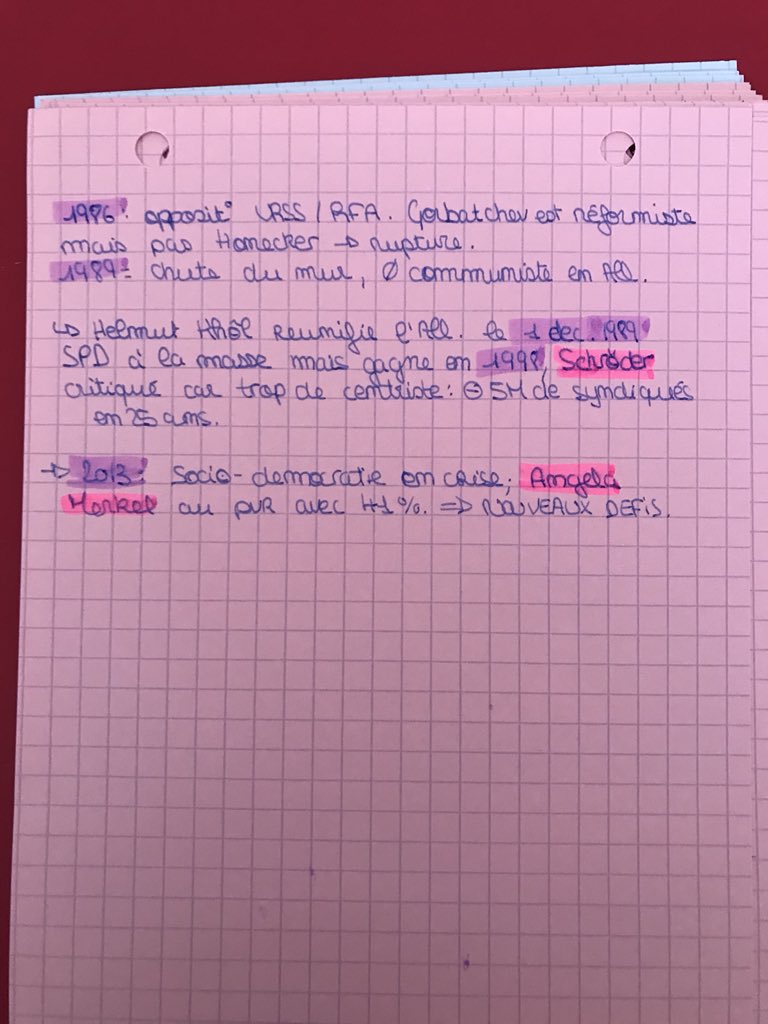 1986: opposit° URSS / RFA. Gorbatchev est réformiste
mais pas Honecker → rupture.
1989: chute du mur, Ø communiste en All.
↳ Helmut Khôl reunifie l'All. le 1 dec. 1989
SPD à la masse mais gagne en 1998, Schröder
critiqué car trop de centriste: ⊖ 5M de syndiqués
en 25 ans.
→ 2013: Socio-democratie en crise; Angela
Merkel au pvR avec 41%. => NOUVEAUX DEFIS.